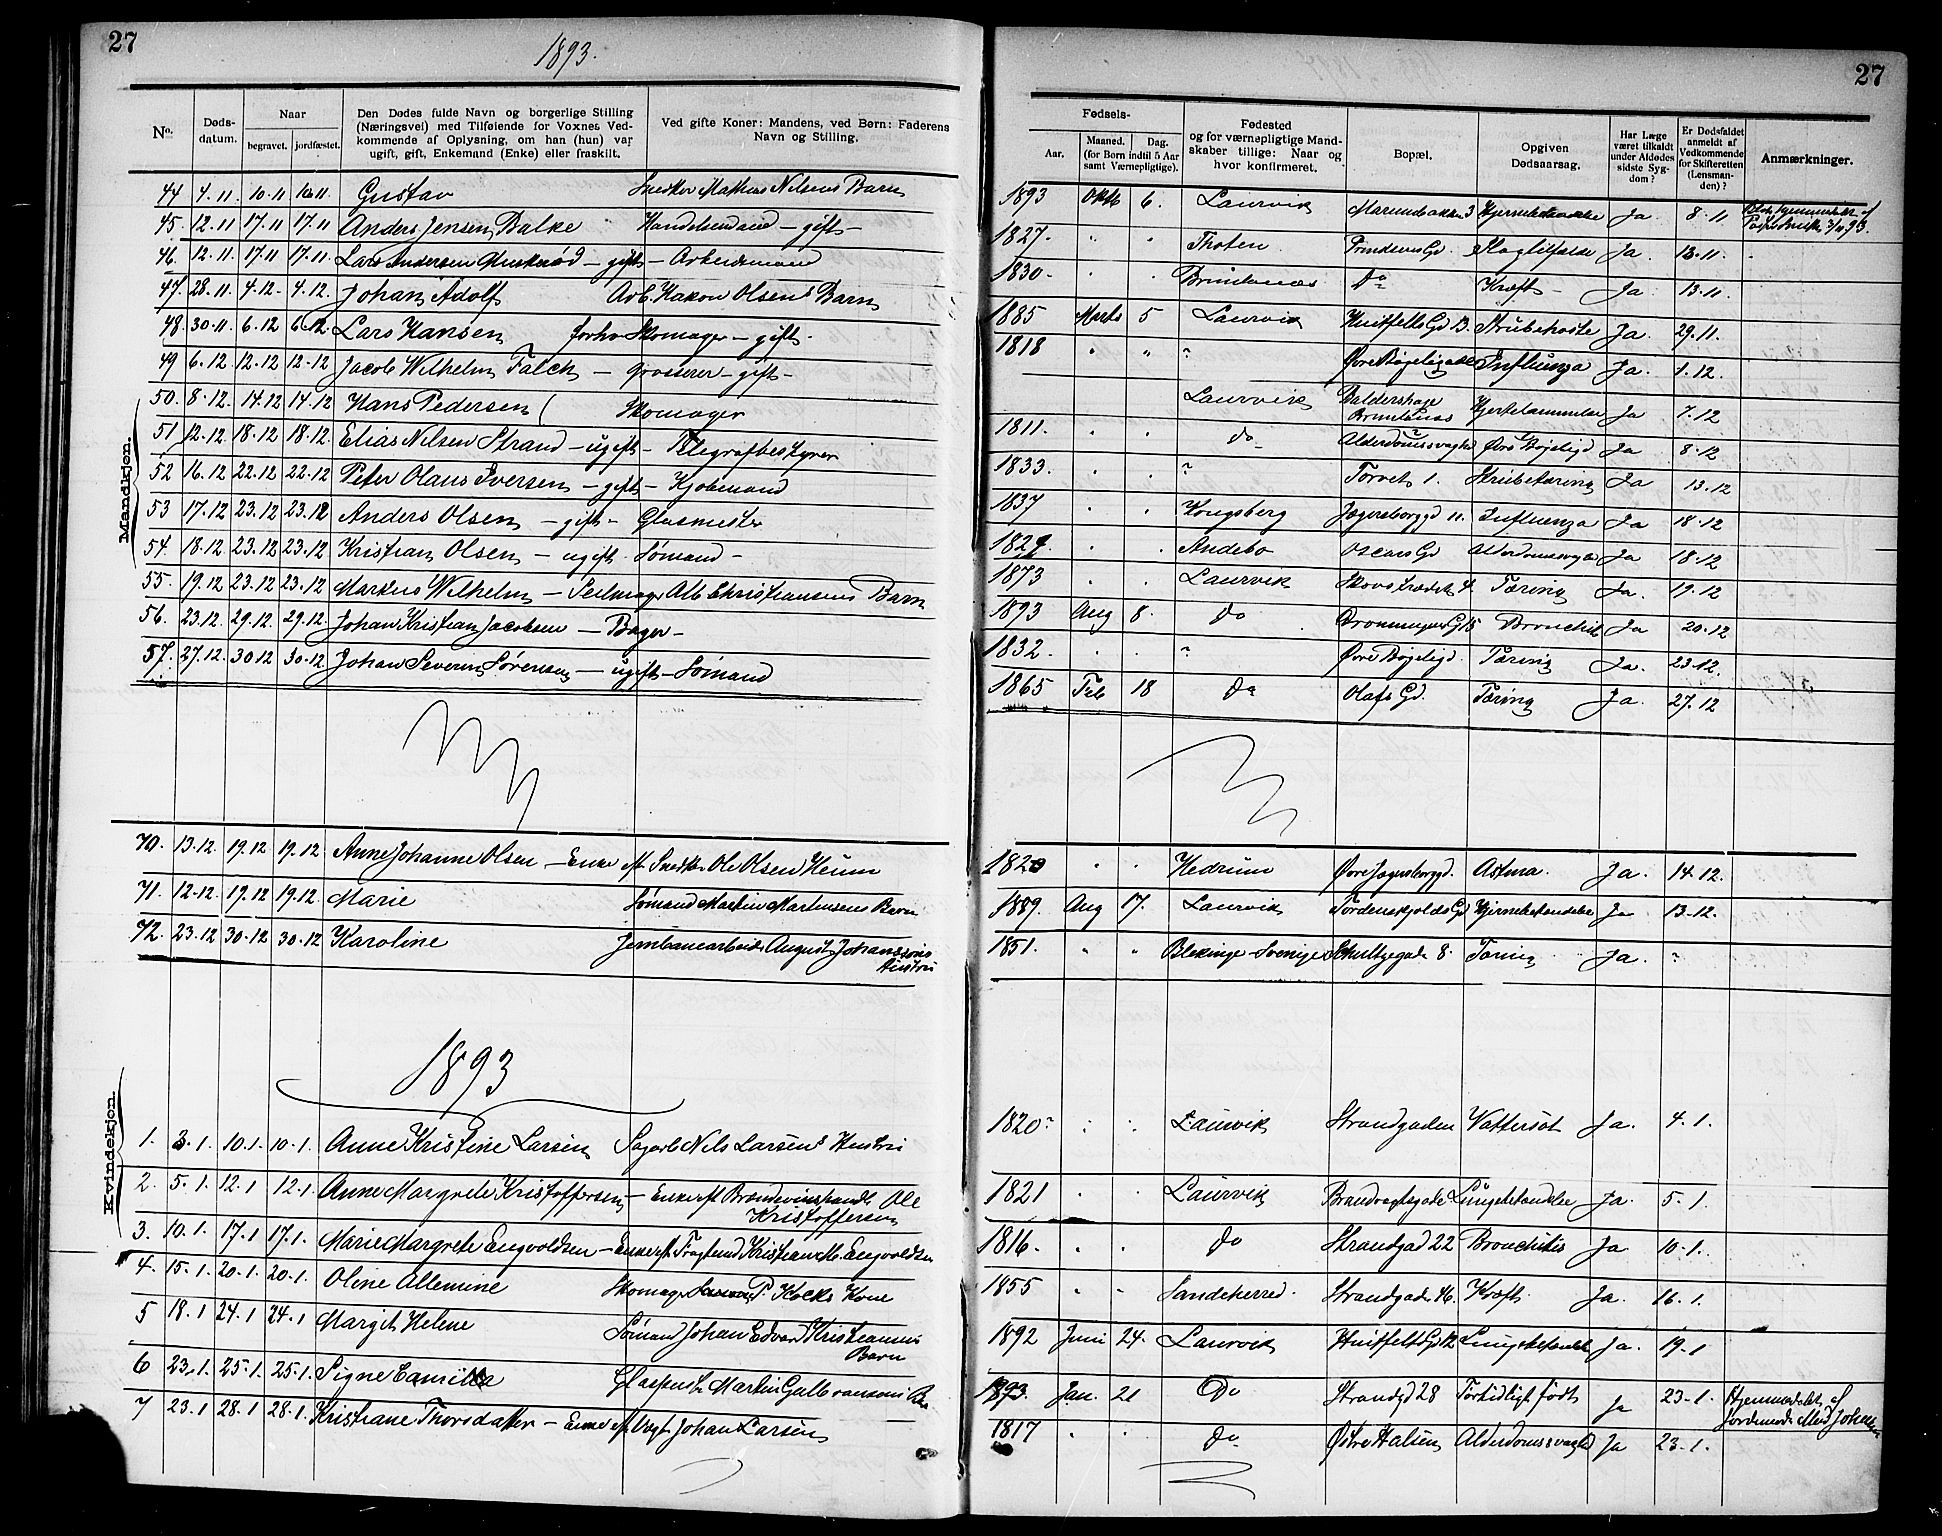 27
1893.
No.
Døds-datum.
Naar
begravet. jordfæstet.
Den Dødes fulde Navn og borgerlige Stilling
(Næringsvei) med Tilføiende for Voxnes Ved-
kommende af Oplysning, om han (hun) var
ugift, gift, Enkemand (Enke) eller fraskilt.
Ved gifte Koner: Mandens, ved Børn: Faderens
Navn og Stilling.
Mandkjøn.
44 4.11 10.11 10.11 Gustav Snedker Mathias Nilsens Barn
45. 12.11 17.11 17.11 Anders Jensen Balke Handelsmand – gift –
46. 12.11 17.11 17.11. Lars Andersen – gift – Arbeidsmand
47. 28.11 4.12. 4.12. Johan Adolf Arb. Hakon Olsens Barn
48. 30.11. 6.12 6.12. Lars Hansen forhv Skomager – gift.
49 6.12 12.12 12.12 Jacob Wilhelm Falck – grosserer – gift –
50. 8.12. 14.12 14.12 Hans Pedersen Skomager
51 12.12 18.12 18.12. Elias Nilsen Strand – ugift – Telegrafbestyrer
52 16.12 22.12 22.12 Peter Olaus Iversen – gift – Kjøbmand
53 17.12 23.12 23.12 Anders Olsen – gift – Glasmester
54. 18.12 23.12 23.12 Kristian Olsen – ugift. Sømand –
55. 19.12 23.12 23.12 Markus Wilhelm – Seilmager Alb Christiansens Barn
56. 23.12. 29.12. 29.12. Johan Kristian Jacobsen – Bager –
57. 27.12. 30.12 30.12. Johan Severin Sørensen – ugift – Sømand
70. 13.12. 19.12 19.12 Anne Johanne Olsen – Enke ef Snedker Ole Olsen Heum
71. 12.12 19.12 19.12 Marie Sømand Martin Martinsens Barn
72. 23.12 30.12 30.12 Karoline Jernbanearbeider August Johanssons
Hustru
1893
Kvindekjøn.
1. 3.1. 10.1. 10.1. Anne Kristine Larsen Sagarb Nils Larsens Hustru
2. 5.1. 12.1 12.1. Anne Margrete Kristoffersen – Enke ef Brændevinshandl Ole
Kristoffersen
3. 10.1. 17.1 17.1. Marie Margrete Engvoldsen – Enke ef. Kristian M. Engvoldsen
4. 15.1. 20.1. 20.1. Oline Allemine Skomager P. Kocks Kone
5 18.1 24.1 24.1 Margit Helene Sømand Johan Edvard Kristiansens
Barn
6 23.1. 25.1. 25.1. Signe Martin Gulbransens
7 23.1 28.1 28.1. Kristiane Thorsdatter – Enke ef Johan Larsen
27
Fødsels-
Aar.
Maaned. Dag.
(for Børn indtil 5 Aar
samt Værnepligtige).
Fødested
og for værnepligtige Mand-
skaber tillige: Naar og
hvor konfirmeret.
Bopæl.
Opgiven
Dødsaarsag.
Har Læge
været tilkaldt
under Afdødes
sidste Syg-
dom?
Er Dødsfaldet
anmeldt af
Vedkommende
for Skifteretten
(Lensman-
den)?
Anmærkninger.
1893 Oktb 6. Laurvik 3 Ja. 8.11
1827. " " Thoten Prindsens Gd. Slagtilfælde Ja. 13.11.
1830. " " Brunlanæs Do Kræft – Ja. 13.11.
1885 Marts 5 Laurvik Huitfelts Gd 13. Strubehoste Ja. 29.11.
1818 " " " Øvre Bøjeligaden Influenza Ja. 1.12.
Laurvik Baldershage
Brunlanæs Ja 7.12
1811. " " do Alderdomssvaghed Øvre Bøjeligd Ja 8.12
1833. " " " Torvet 1. Strubetæring Ja 13.12
1837 " " Kongsberg Jegersborggd 11. Influenza Ja 18.12
" " Andebo Oscars Gd Ja 18.12
1873 " " Laurvik 4. Tæring Ja. 19.12
1893 Aug 8. do 15 Bronchit Ja 20.12
1832. " " " Øvre Bøjeligd. Tæring Ja. 23.12.
1865 Feb 18 do Olafs Gd. Tæring Ja. 27.12
" " Hedrum Øvre Jegersborggd. Astma. Ja. 14.12.
1889. Aug 17. Laurvik Tordenskjolds Gd Hjernebetændelse Ja 13.12.
1851. " " Blekinge – Sverige Schultzegade 8. Tæring Ja. "
1820? " " Laurvik Strandgaden Vattersot Ja. 4.1.
1821 " " Laurvik Brandvagtsgade Lungebetændelse Ja. 5.1
1816. " " do Strandgad 22 Bronchitis Ja 10.1.
1855 " " Sandeherred. Strandgade 46. Kræft. Ja. 16.1.
1892 Juni 24. Laurvik Huitfelts Gd 12 Lungebetændelse Ja. 19.1
1893. Jan. 21 Do Strandgd 28 Fortidligt født Ja 23.1. Hjemmedøbt af
1817 " " do Østre Halsen Alderdomssvaghed Ja 23.1.